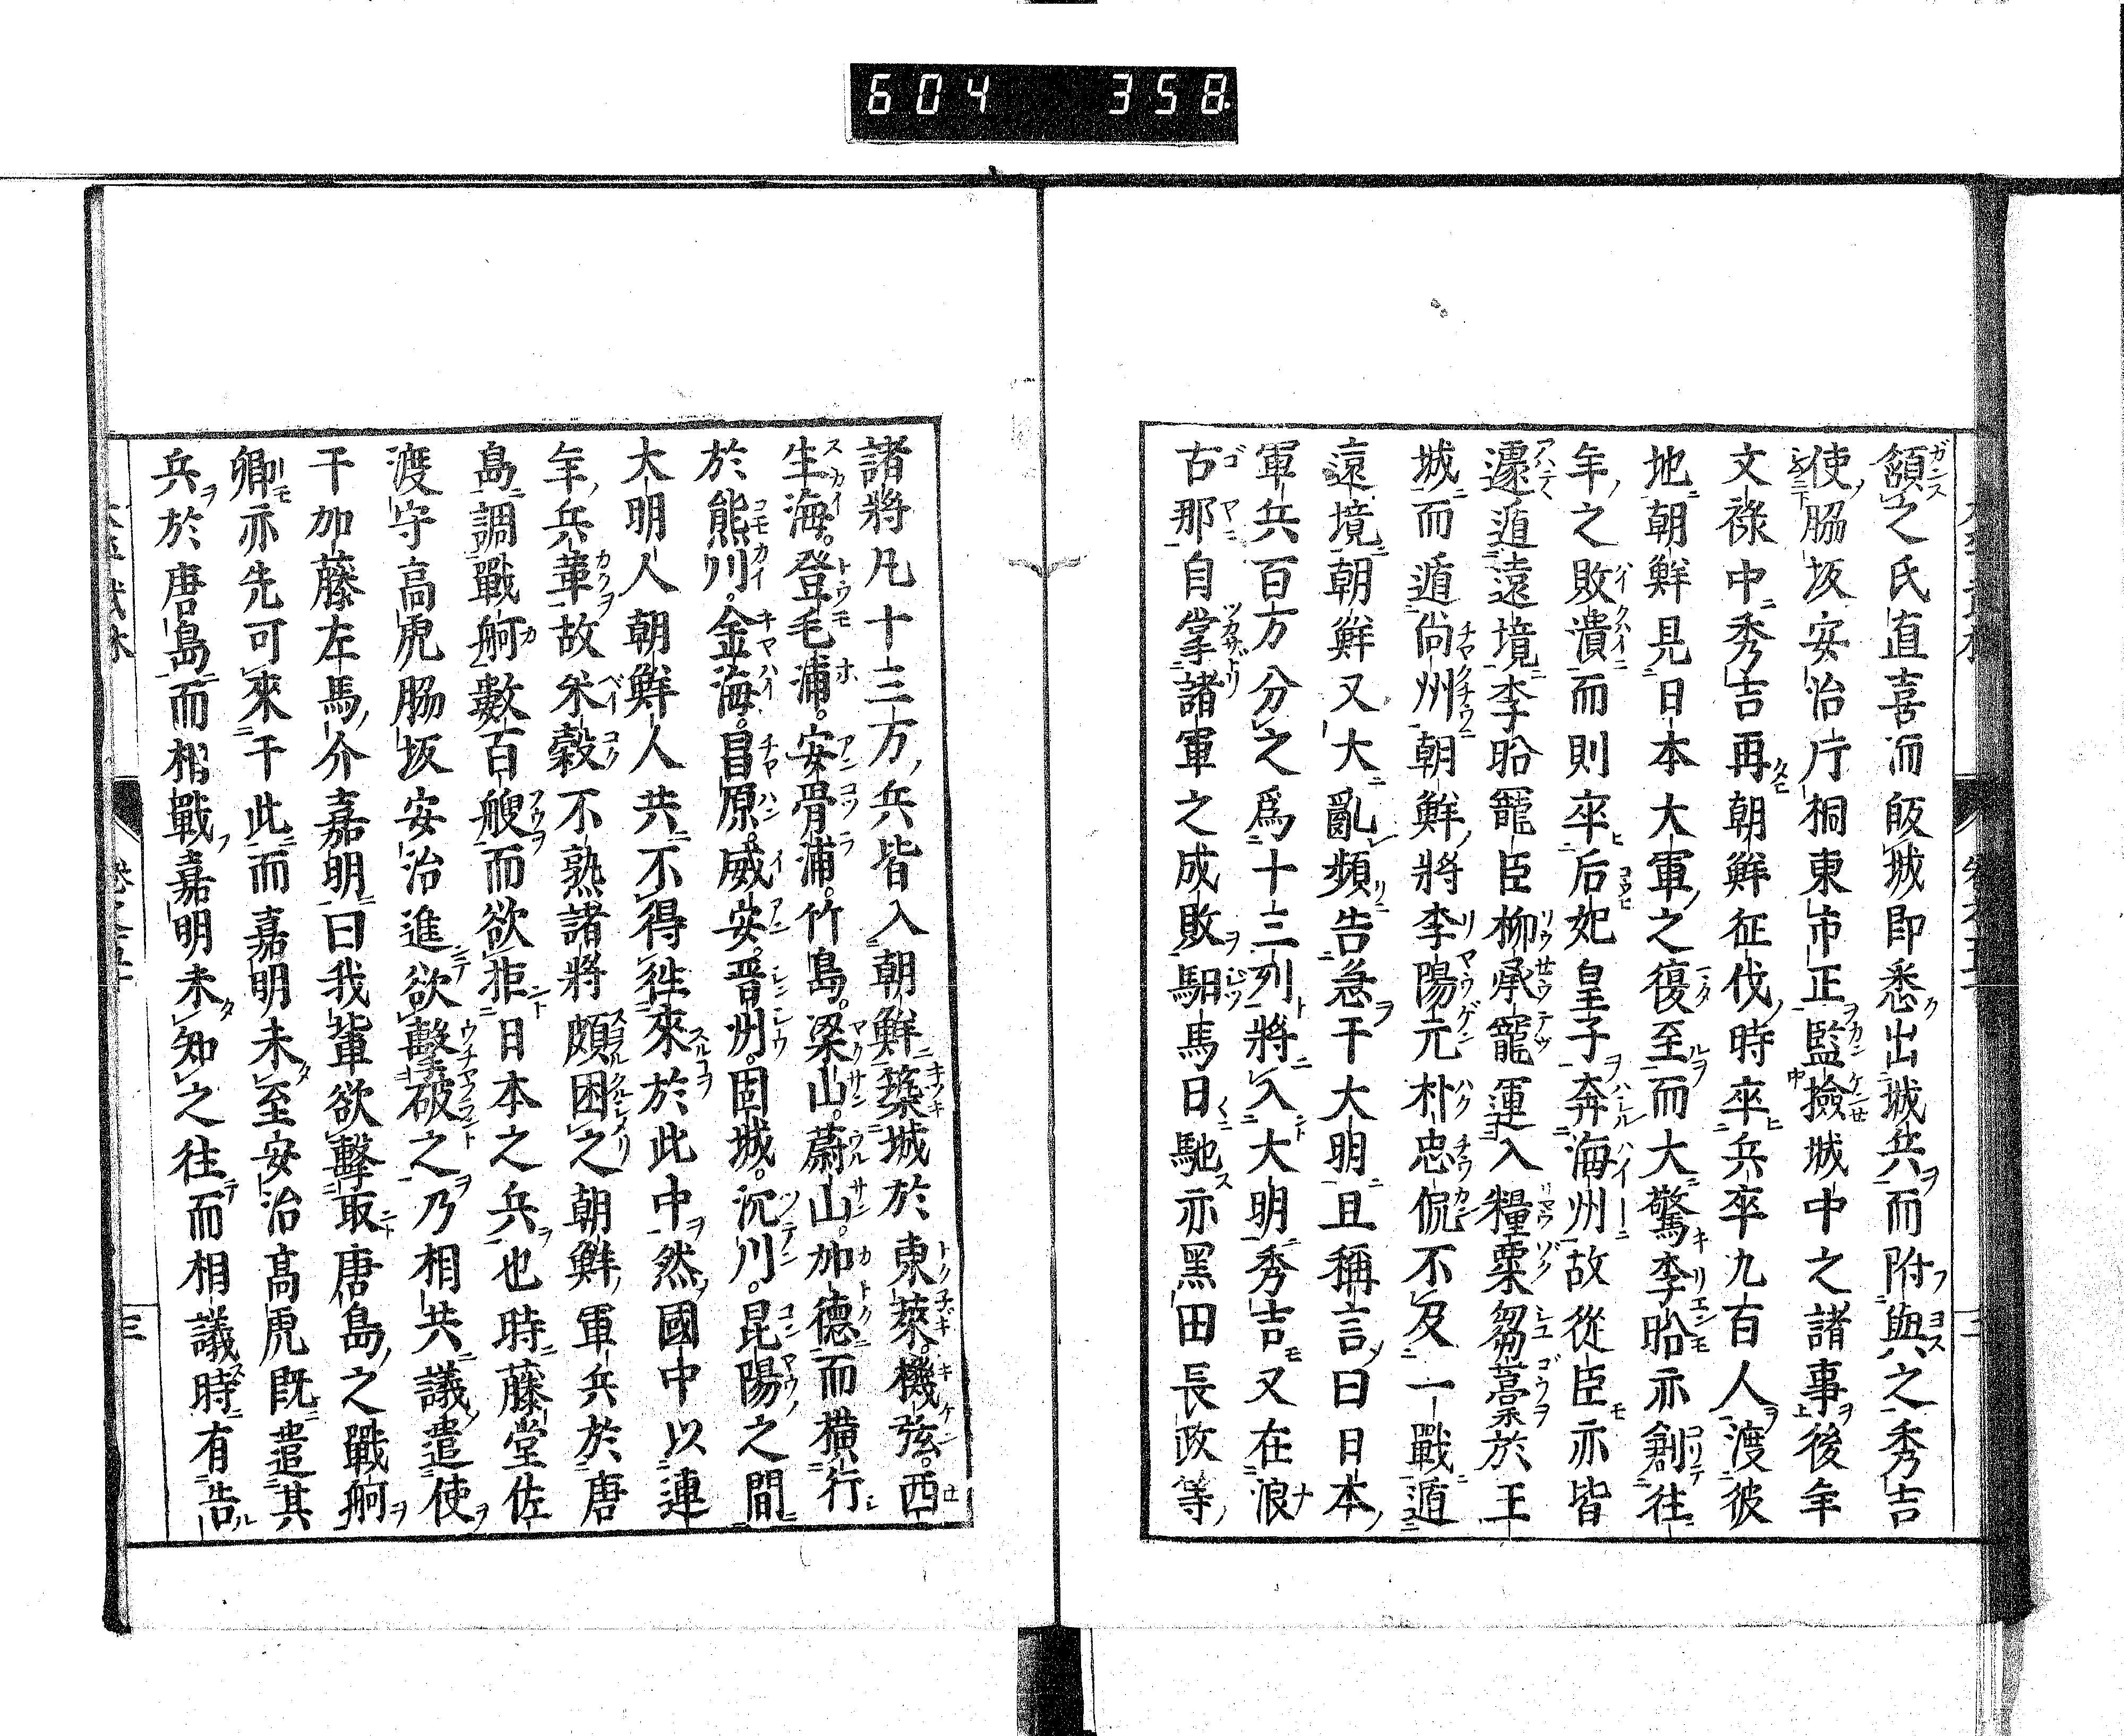 604 358
頷之氏直喜而皈城即悉出城兵而附與之秀吉
使脇坂安治片桐東市正監撿城中之諸事後年
文祿中秀吉再朝鮮征伐時卒兵卒九百人渡彼
地朝鮮見日本大軍之復至而大驚李昖亦創往
年之敗潰而則卒后妃皇子奔海州故從臣亦皆
遽遁遠境李昖寵臣柳承寵運入糧粟芻藁於王
城而遁尙州朝鮮將李陽元朴忠侃不及一戰遁
遠境朝鮮又大亂頻告急干大明且稱言曰日本
軍兵百万分之爲十三列將入大明秀吉又在浪
古那自掌諸軍之成敗馹馬日馳亦黑田長政等
諸將凡十三万兵皆入朝鮮築城於東萊。機張。西
生海。登毛浦。安骨浦。竹島。梁山。蔚山。加德而横行
於熊川。金海。昌原。威安。晋州。固城。沉川。昆陽之間
大明人朝鮮人共不得徃來於此中然國中以連
年兵革故米穀不熟諸將頗困之朝鮮軍兵於唐
島調戰舸數百艘而欲拒日本之兵也時藤堂佐
渡守高虎脇坂安治進欲擊破之乃相共議遣使
干加藤左馬介嘉明曰我輩欲擊取唐島之戰舸
卿亦先可來干此而嘉明未至安治高虎既遣其
兵於唐島而相戰嘉明未知之往而相議時有告
三